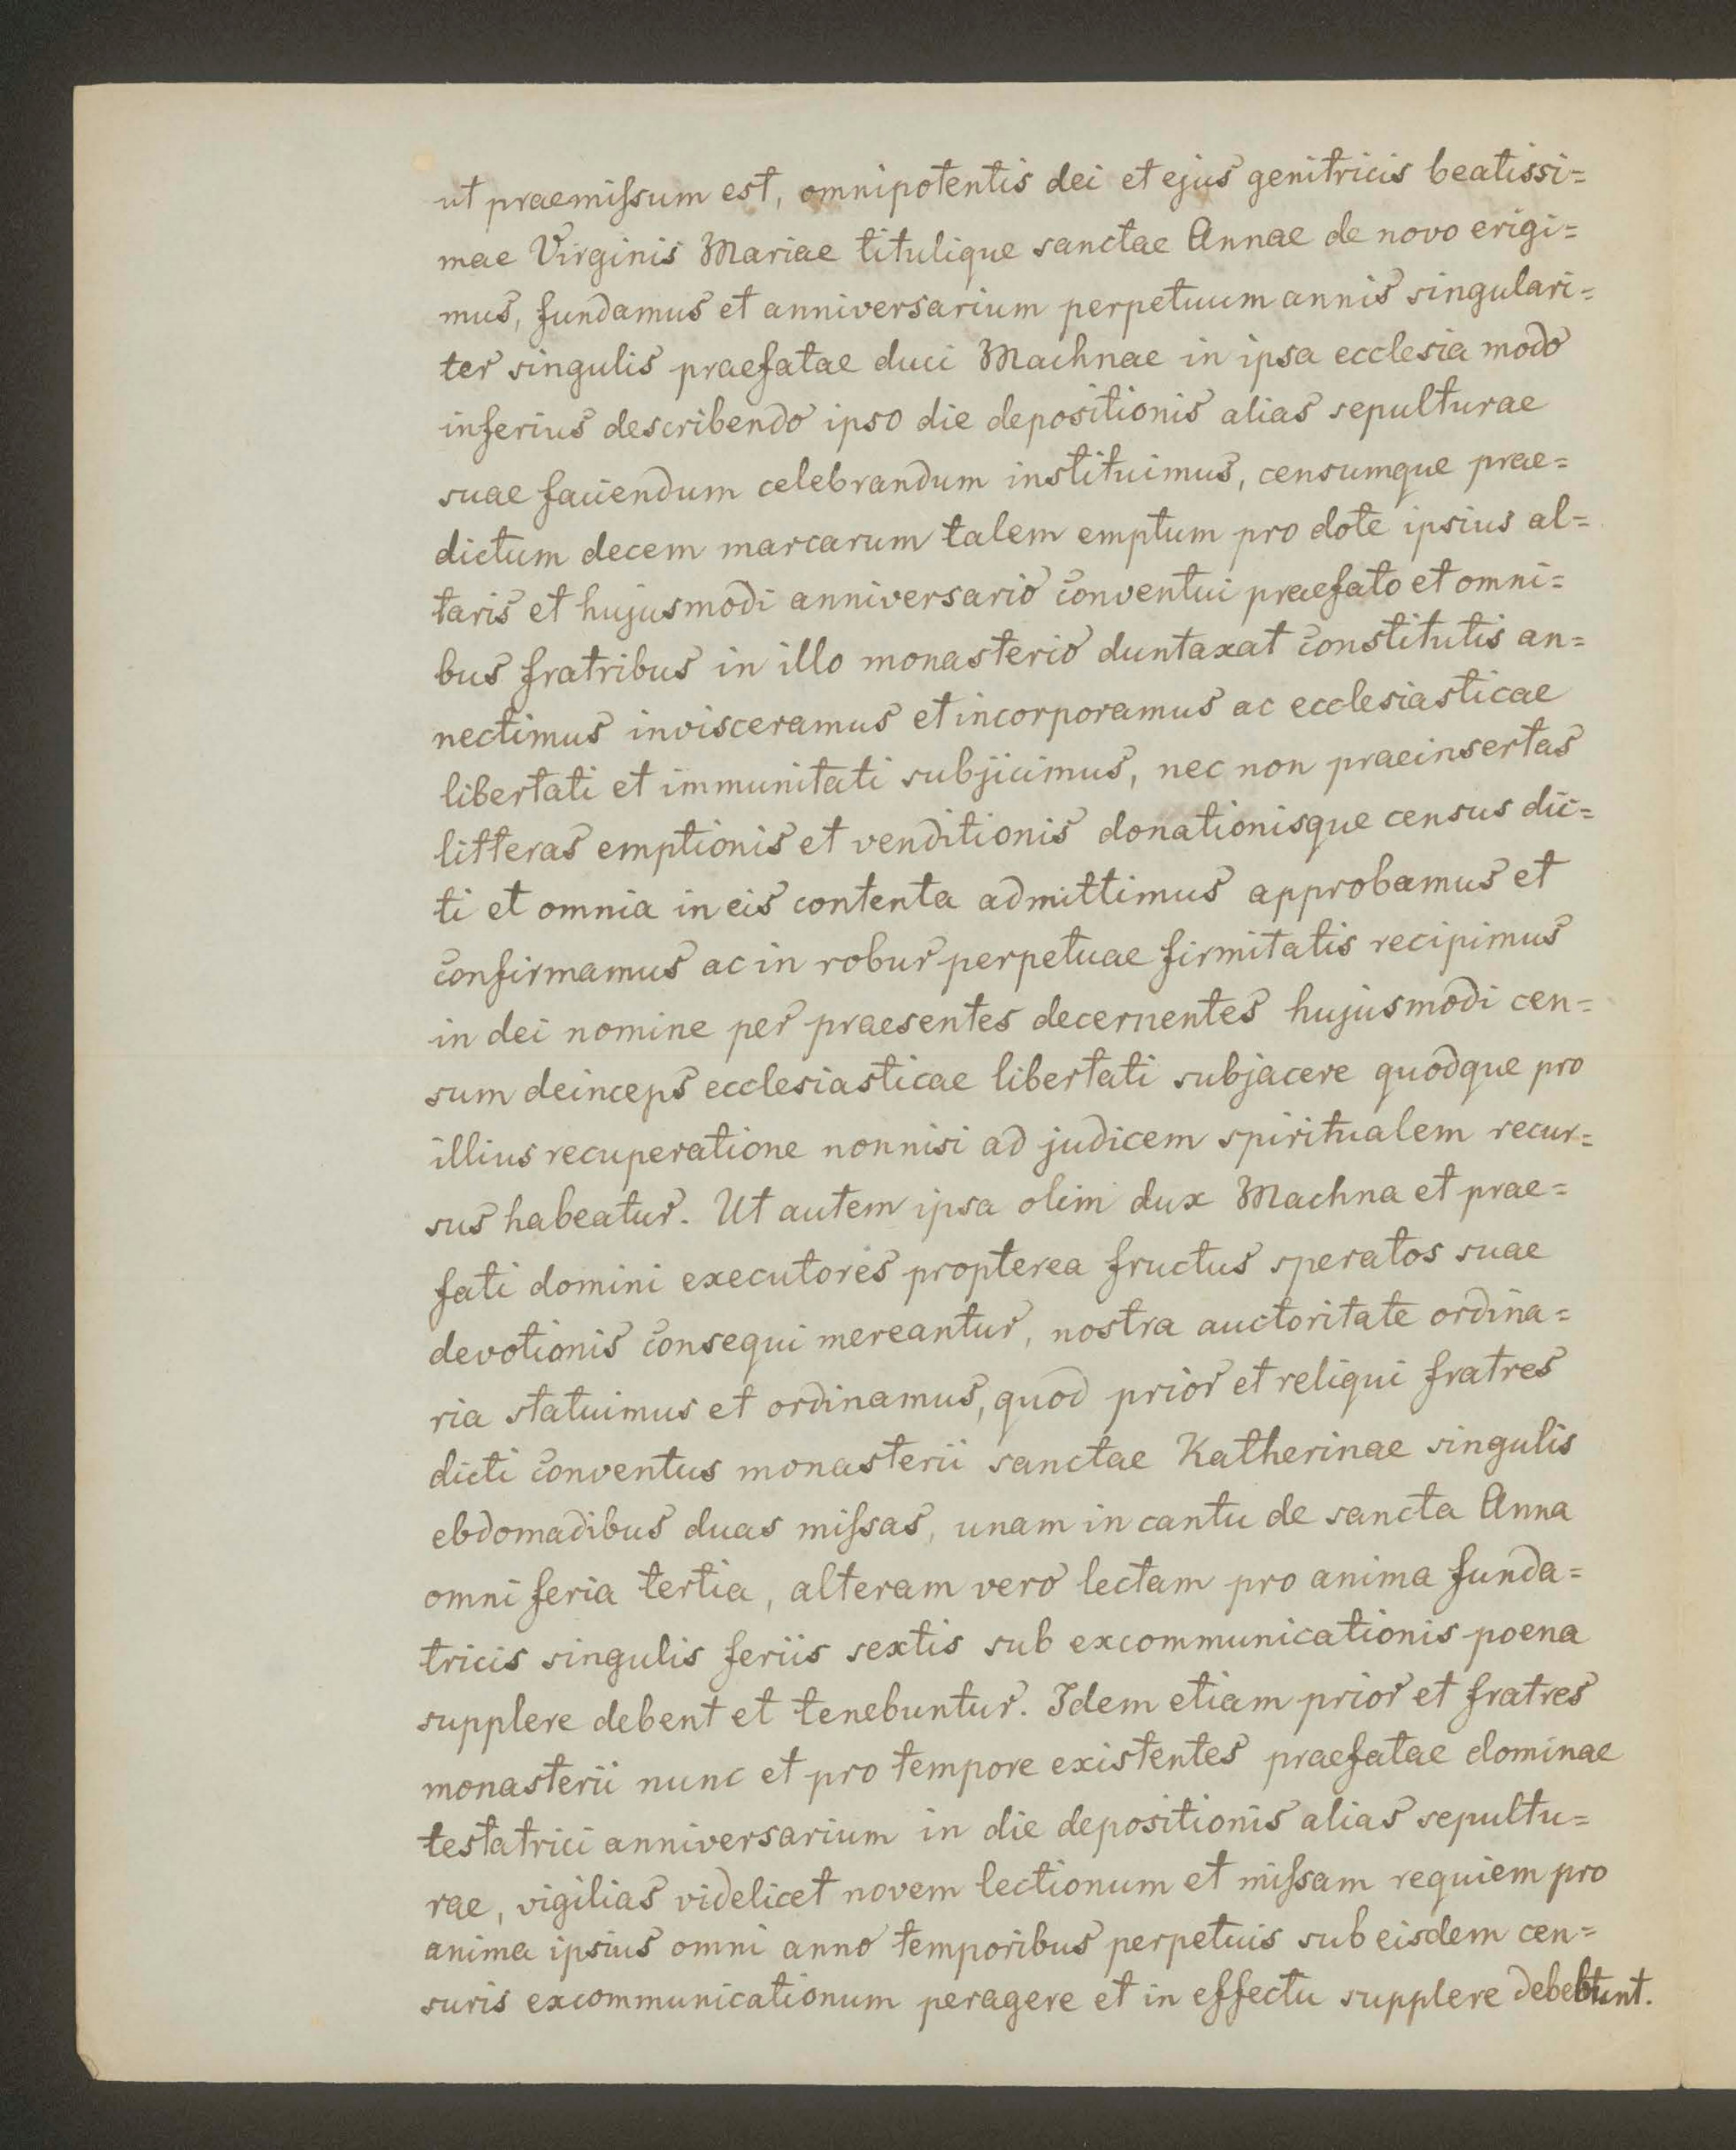 ut praemissum est, omnipotentis dei et ejus genitricis beatissi=
mae Virginis Mariae titulique sanctae Annae de novo erigi=
mus, fundamus et anniversarium perpetuum annis singulari=
ter singulis praefatae duci Machnae in ipsa ecclesia modo
inferius describendo ipso die depositionis alias sepulturae
suae faciendum celebrandum instituimus, censumque prae=
dictum decem marcarum talem emptum pro dote ipsius al=
taris et hujusmodi anniversario conventui praefato et omni=
bus fratribus in illo monasterio duntaxat constitutis an=
nectimus invisceramus et incorporamus ac ecclesiasticae
libertati et immunitati subjicimus, nec non praeinsertas
litteras emptionis et venditionis donationisque census dic=
ti et omnia in eis contenta admittimus approbamus et
confirmamus ac in robur perpetuae firmitatis recipimus
in dei nomine per praesentes decernentes hujusmodi cen=
sum deinceps ecclesiasticae libertati subjacere quodque pro
illius recuperatione nonnisi ad judicem spiritualem recur=
sus habeatur. Ut autem ipsa olim dux Machna et prae=
fati domini executores propterea fructus speratos suae
devotionis consequi mereantur, nostra auctoritate ordina=
ria statuimus et ordinamus, quod prior et reliqui fratres
dicti conventus monasterii sanctae Katherinae singulis
ebdomadibus duas missas, unam in cantu de sancta Anna
omni feria tertia, alteram vero lectam pro anima funda=
tricis singulis feriis sextis sub excommunicationis poena
supplere debent et tenebuntur. Idem etiam prior et fratres
monasterii nunc et pro tempore existentes praefatae dominae
testatrici anniversarium in die depositionis alias sepultu=
rae, vigilias videlicet novem lectionum et missam requiem pro
anima ipsius omni anno temporibus perpetuis sub eisdem cen=
suris excommunicationum peragere et in effectu supplere